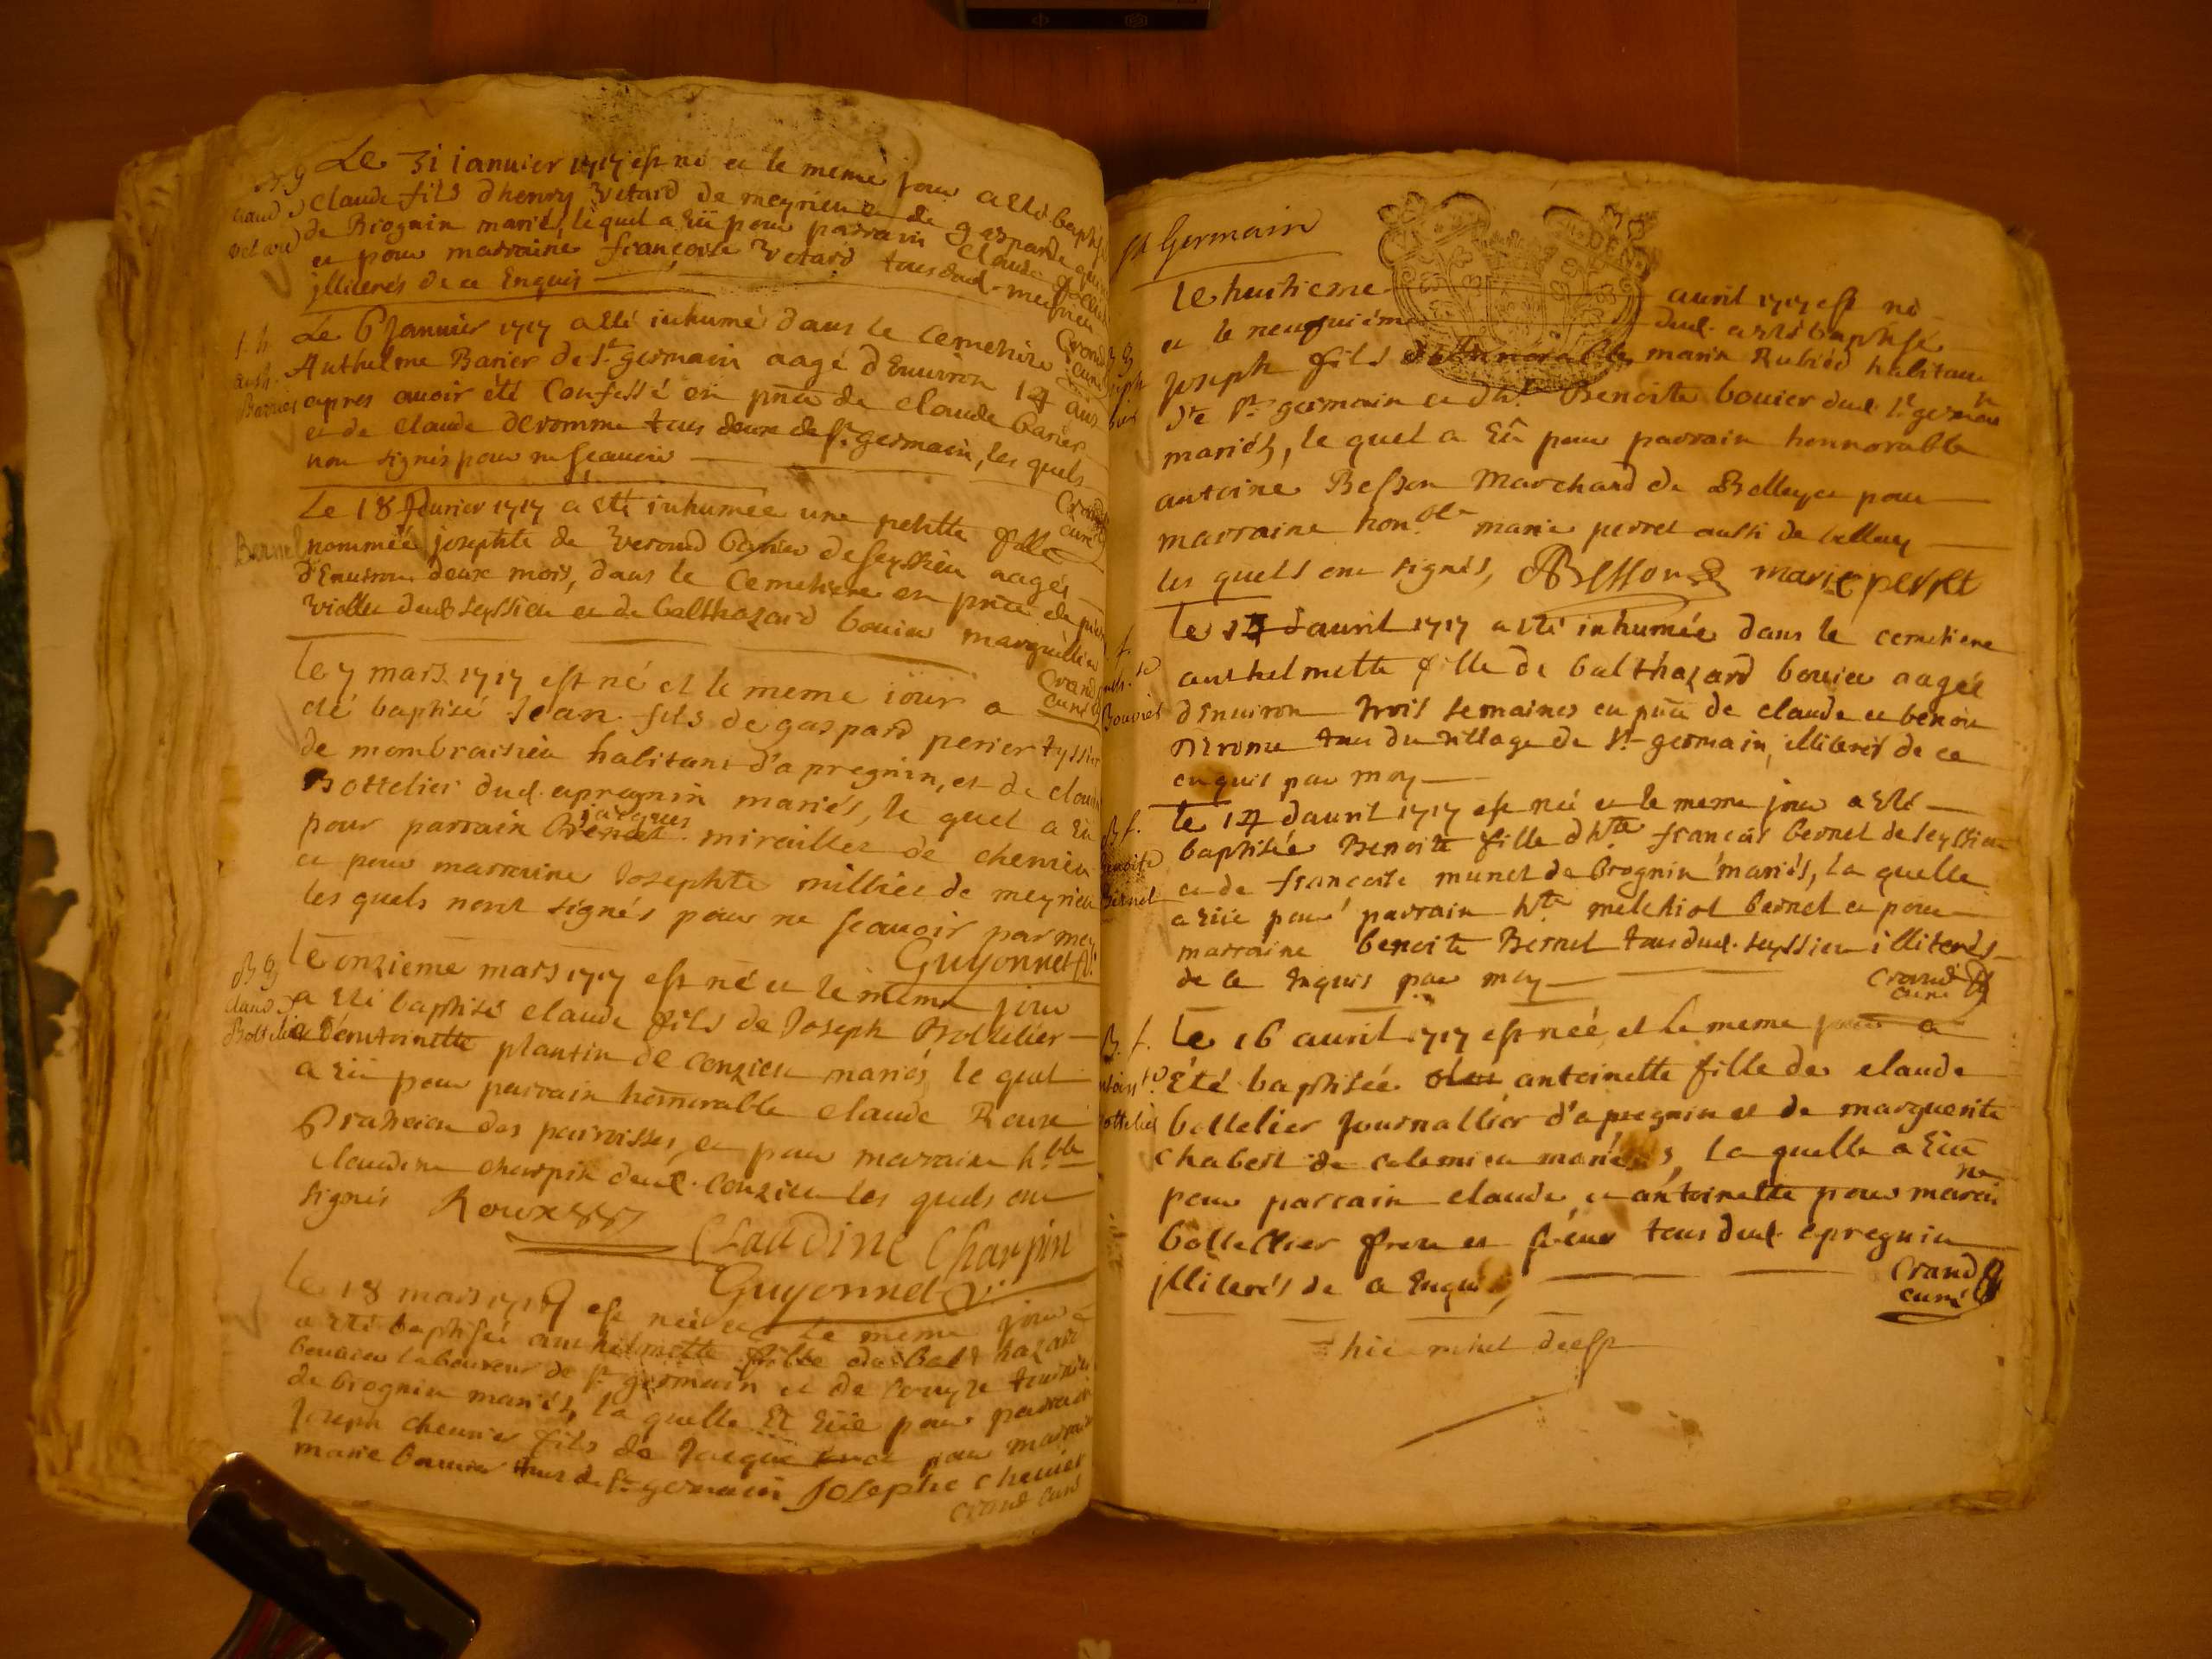 Le 31 ianuier 1717 est né et le meme jour a esté baptisé
claude fils dhenry Vetard de meyrieu et de gasparde
de Brognin mariés, le quel a eü pour parrain Claude
et pour marraine françoise Vetard tous dud. meyrieu
jlliterés de ce Enquis
Crand
curé
Le 6 Januier 1717 a esté inhumé dans le cemetiere
Anthelme Barier de St germain aagé d'Enuiron 14 ans
apres auoir été Confessé en pnce de claude barier
et de claude deromme tous deux de St germain, les quels
non signés pour ne sçauoir
Crand
curé
Le 18 feurier 1717 a esté inhumée une petitte fille
nommée josephte de Veroud de seyssieu aagée
d'Enuiron deux mois, dans le Cemetiere en pnce de
Viollet dud seyssieu et de balthazard bouier marguillier
Crand
curé
Le 7 mars 1717 est né et le meme iour a
été baptisé Jean fils de gaspard perier tyssier
de mombraissieu habitant d'apregnin, et de claud
Bottelier dud. apregnin mariés, le quel a eu
jacques
pour parrain mirailler de chemieu
et pour marraine Josephte millier de meyrieu
les quels n'ont signés pour ne sçauoir par moy
Guyonnet V.
B g
claude
Bottelier
Le onzieme mars 1717 est né et le meme jour
a esté baptisé claude fils de Joseph Bottelier
et d'entoinette plantin de conzieu mariés le quel
a eü pour parrain honnorable claude Roux
Praticien des parroisses, et pour marraine hble
Claudine charpin dud. Conzieu les quels ont
signés Roux
CLaudine Charpin
Guyonnet V.
Le 18 mars 1717 est née et le meme jour
a esté baptisée anthelmette fille de Balthazard
bouuier laboureur de St germain et de
de brognin mariés, la quelle at eüe pour parrain
Joseph cheurier fils de Jacque et pour marraine
marie bouuier tous de St germain Josephe cheuier
Crand curé
St Germain
Le huitieme auril 1717 est né
et le neufuième dud. a esté baptisé
Joseph fils d'honnorable marin Rubied habitant
de St germain et d'h. Benoite bouier dud. St germain
mariés, le quel a eü pour parrain honnorable
antoine Besson Marchand de Belley et pour
marraine honble marie perret aussi de belley
les quels ont signés, ABesson marie perret
Le d'auril 1717 a esté inhumée dans le cemetiere
anthelmette fille de balthazard bouier aagée
d'Enuiron trois semaines en pnce de claude et benoit
Derome tous du village de St germain, illiterés de ce
enquis par moy
B f.
benoite
bernet
Le 14 dauril 1717 est née et le meme jour a esté
baptisée Benoite fille dhte françois bernet de seyssieu
et de françoise munet de brognin mariés, la quelle
a eüe pour parrain hte melchiot bernet et pour
marraine benoite Bernet tous dud. seyssieu illiterés
de ce Enquis par moy
Crand
curé
B. f.
Le 16 auril 1717 est née, et le meme jour a
Eté baptisée antoinette fille de claude
bottelier Journallier d'apregnin et de marguerite
chabert de colomieu mariés, la quelle a eüe
pour parrain claude, et antoinette pour maraine
bottellier frere et soeur tous dud. apregnin
jlliterés de ce Enquis
Crand
curé
hic nihil deest